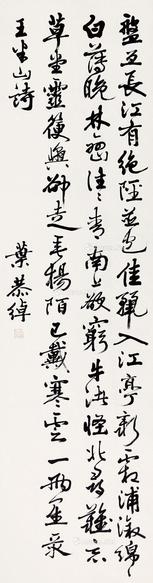 盤互長江有絕陘並包佳麗入江亭新霜浦溆綿〻
白薄晚林巒往〻青南上欲窮牛渚怪北尋難忘
草堂靈箯輿卻走垂楊陌已戴寒雲一兩星录
王半山詩
葉恭綽